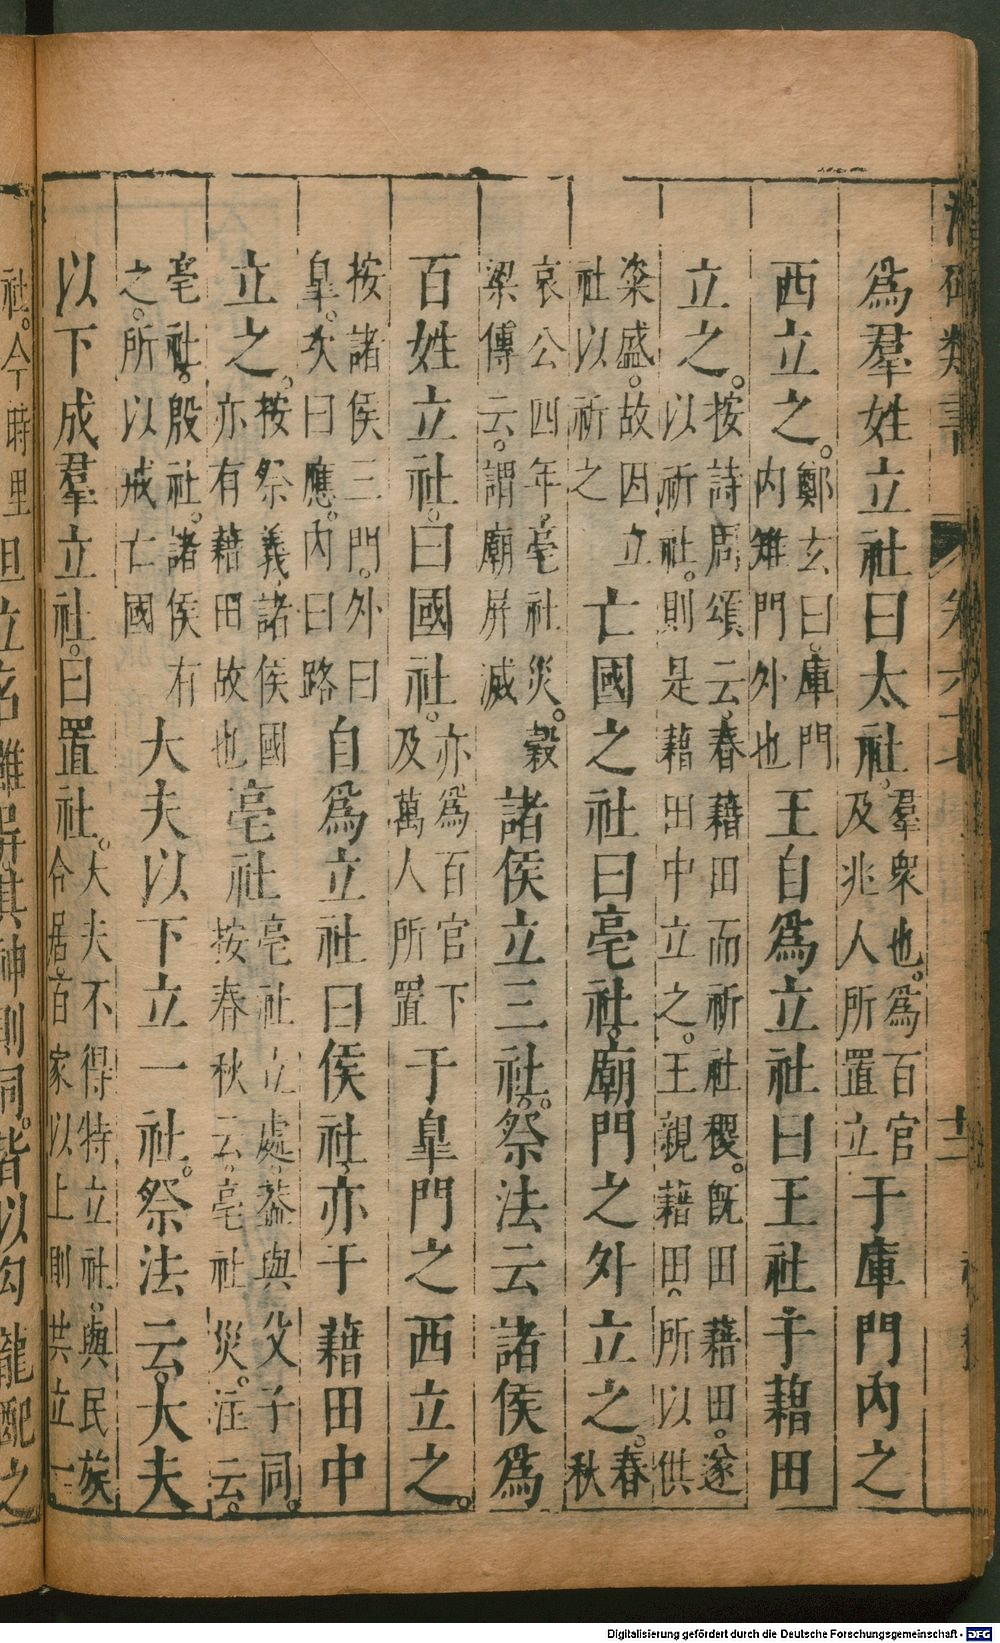 確類書 卷六十七 十二 社稷
爲羣姓立社曰太社。羣衆也。爲百官及兆人所置立于庫門內之
西立之。鄭玄曰。庫門內雉門外也王自爲立社曰王社于藉田
立之。按詩周頌云。春藉田而祈社稷。既田藉田。遂以祈社。則是藉田中立之。王親藉田。所以供
粢盛。故因立社以祈之亡國之社曰亳社。廟門之外立之。春秋
哀公四年。亳社災。穀梁傳云。謂廟屏滅諸侯立三社。祭法云諸侯爲
百姓立社。曰國社。亦爲百官下及萬人所置于臯門之西立之。
按諸侯三門。外曰臯。次曰應。內曰路自爲立社曰侯社亦于藉田中
立之。按祭義諸侯國亦有藉田故也亳社亳社立處。葢與父子同。按春秋云。亳社災。注云。
亳社。殷社。諸侯有之。所以戒亡國大夫以下立一社。祭法云。大夫
以下成羣立社。曰置社。大夫不得特立社。與民族合居。百家以上則共立一
社。今時里但立名雖異其神則同。皆以勾龍配之
Digitalisierung gefördert durch die Deutsche Forschungsgemeinschaft - DFG